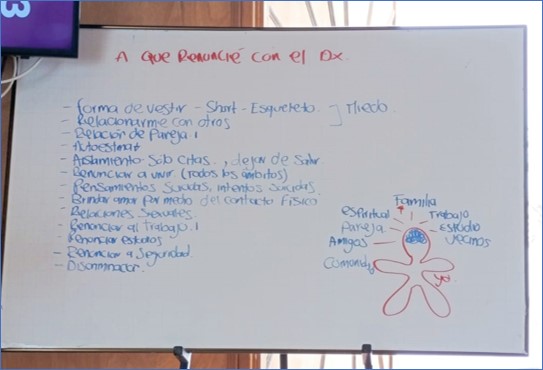 3
A que Renuncié con el Dx.
- Forma de vestir - Short - Esqueleto. ] Miedo.
- Relacionarme con otros
- Relación de Pareja 1
- Autoestima
- Aislamiento - Sólo citas. , dejar de Salir.
- Renunciar a vivir (todos los ámbitos)
- Pensamientos Suicidas, intentos suicidas.
- Brindar amor por medio del contacto Físico
- Relaciones Sexuales.
- Renunciar al trabajo. 1
- Renunciar estudios
- Renunciar a Seguridad.
- Discriminación.
Familia
espiritual
Trabajo
Pareja
Estudio
Amigas
vecinos
Comunidad
yo.